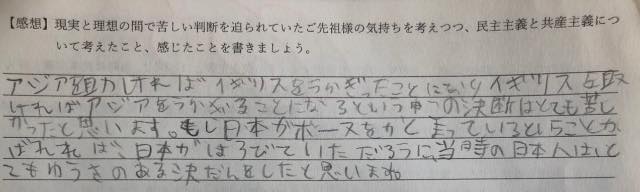 【感想】現実と理想の間で苦しい判断を迫られていたご先祖様の気持ちを考えつつ、民主主義と共産主義につ
いて考えたこと、感じたことを書きましょう。
アジア組カしければイギリスをうらぎったことになりイギリスを取
ければアジアをうらぎることになるという中この決断はとても苦し
かったと思います。もし日本がボースをかくまっているということが
ばれれば、日本がほろびていただろうに、当時の日本人は、と
てもゆうきのある決だんをしたと思いますね